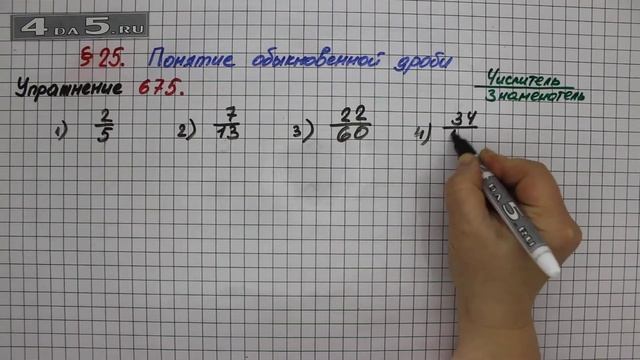 4 DA 5.RU
§ 25. Понятие обыкновенной дроби
Упражнение 675.
Числитель
Знаменатель
1) 2/5 2) 7/13 3) 22/60 4) 34
DA 5.RU